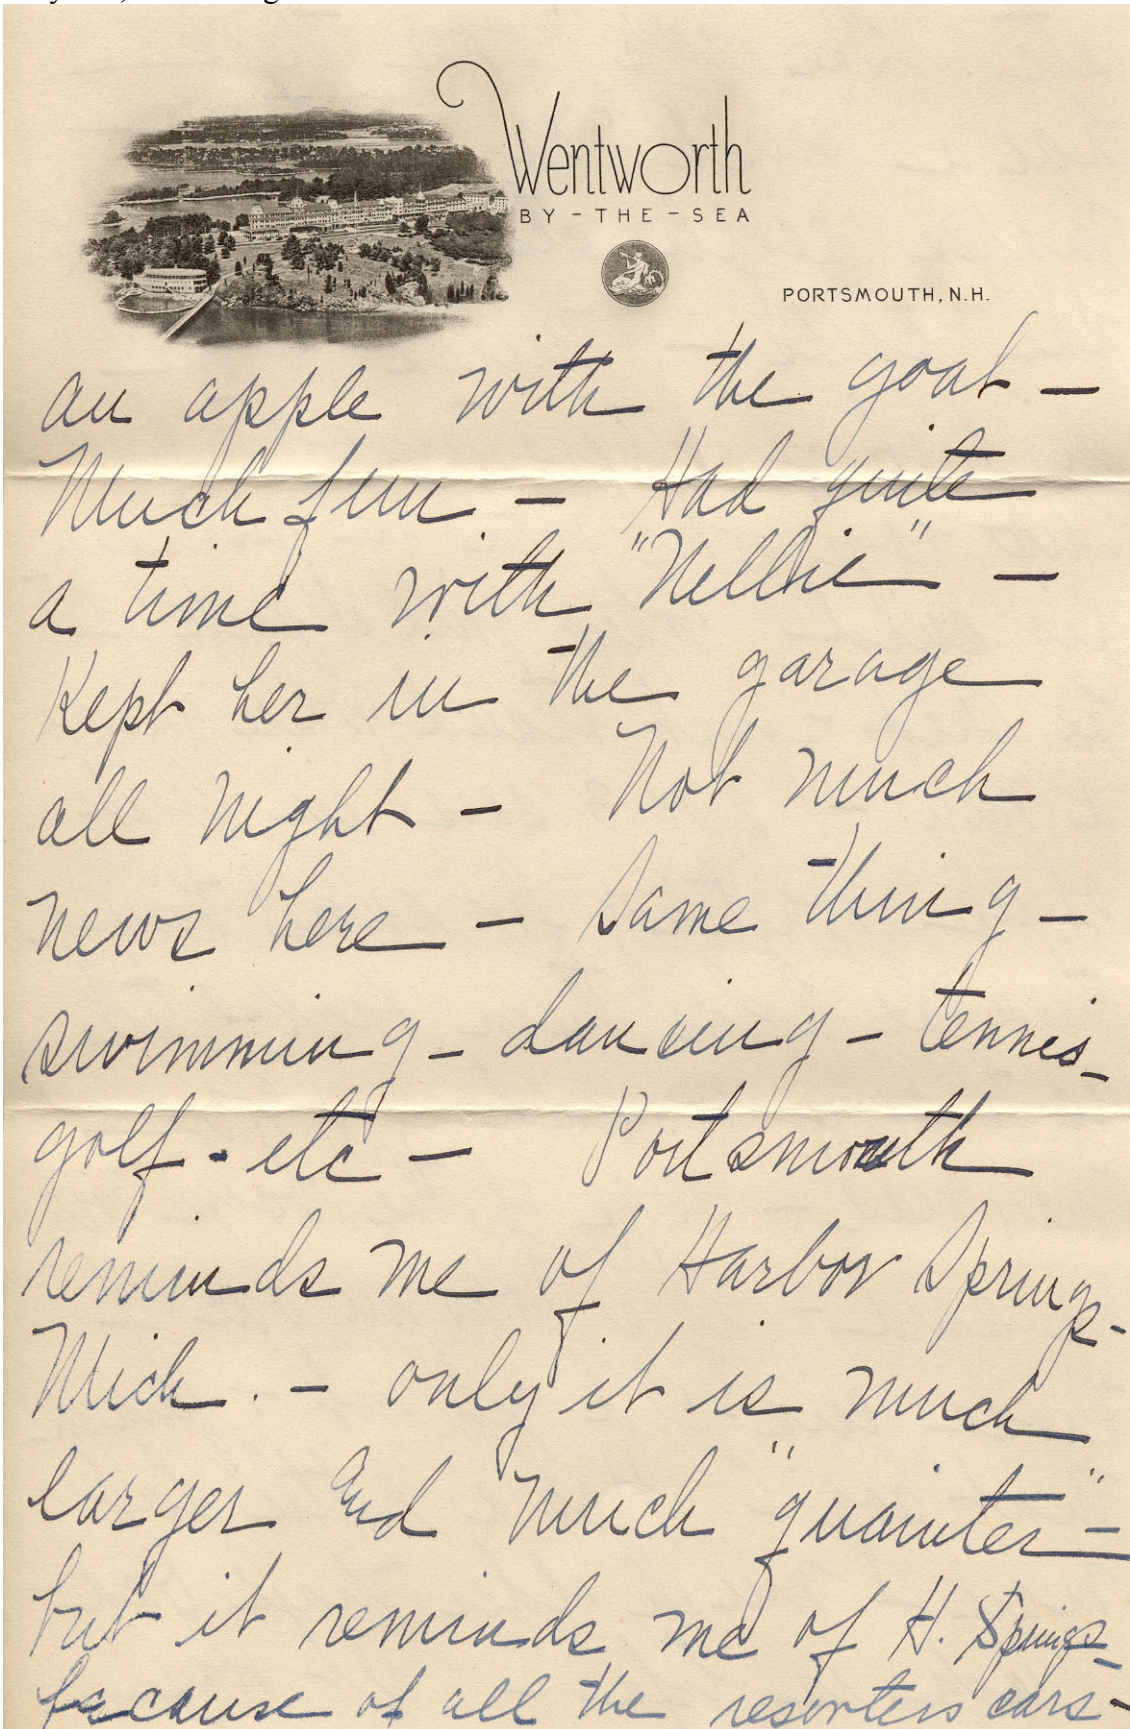 Wentworth
BY-THE-SEA
PORTSMOUTH, N.H.
an apple with the goat –
Much fun – Had quite
a time with "Nellie" –
Kept her in the garage
all night – Not much
news here – Same thing –
swimming – dancing – tennis –
golf - etc – Portsmouth
reminds me of Harbor Springs –
Mich. – only it is much
larger and much "quainter" –
but it reminds me of H. Springs –
because of all the resorters cars –